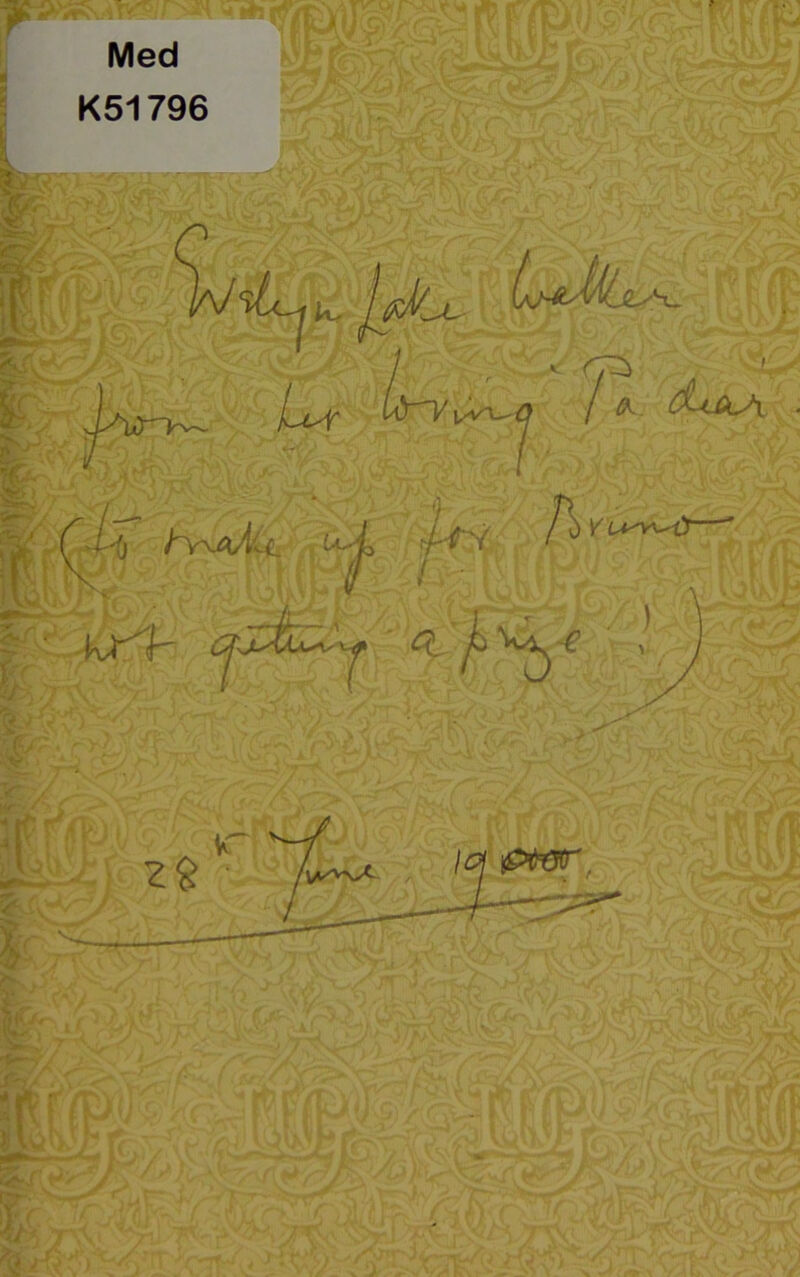 Med
K51796
Evelyn Jake Walker
from her loving "Pa dear
(To make up for Bruno
not getting a prize!)
28th June 19